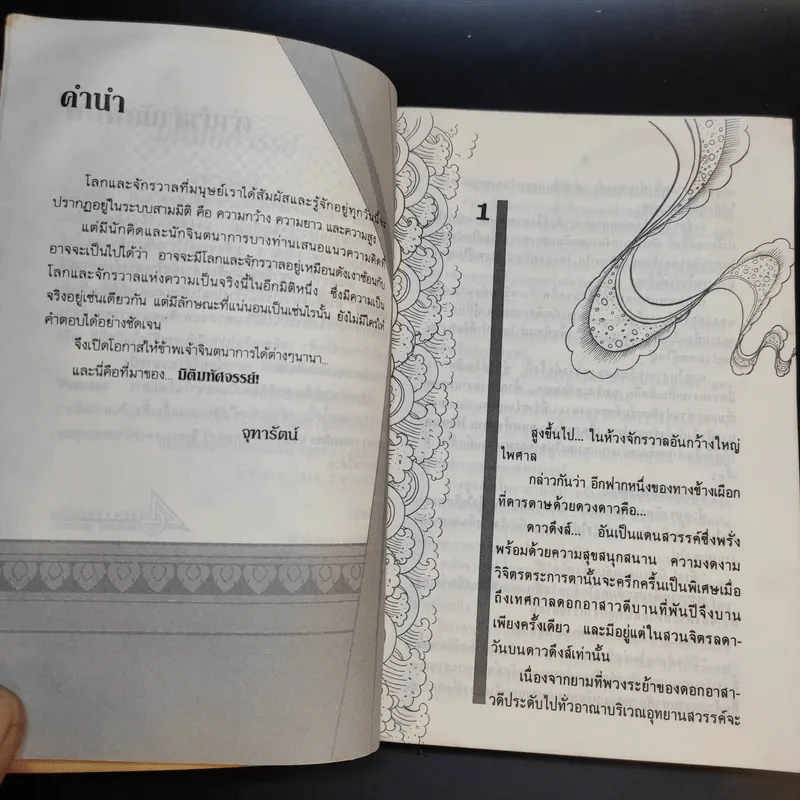 คำนำ
โลกและจักรวาลที่มนุษย์เราได้สัมผัสและรู้จักอยู่ทุกวันนี้จะ
ปรากฏอยู่ในระบบสามมิติ คือ ความกว้าง ความยาว และความสูง
แต่มีนักคิดและนักจินตนาการบางท่านเสนอแนวความคิดที่
อาจจะเป็นไปได้ว่า อาจจะมีโลกและจักรวาลอยู่เหมือนดังเงาซ้อนกับ
โลกและจักรวาลแห่งความเป็นจริงนี้ในอีกมิติหนึ่ง ซึ่งมีความเป็น
จริงอยู่เช่นเดียวกัน แต่มีลักษณะที่แน่นอนเป็นเช่นไรนั้น ยังไม่มีใครให้
คำตอบได้อย่างชัดเจน
จึงเปิดโอกาสให้ข้าพเจ้าจินตนาการได้ต่างๆนานา...
และนี่คือที่มาของ... มิติมหัศจรรย์!
จุฑารัตน์
1
สูงขึ้นไป... ในห้วงจักรวาลอันกว้างใหญ่
ไพศาล
กล่าวกันว่า อีกฟากหนึ่งของทางช้างเผือก
ที่ดารดาษด้วยดวงดาวคือ...
ดาวดึงส์... อันเป็นแดนสวรรค์ซึ่งพรั่ง
พร้อมด้วยความสุขสนุกสนาน ความงดงาม
วิจิตรตระการตานั้นจะครึกครื้นเป็นพิเศษเมื่อ
ถึงเทศกาลดอกอาสาวดีบานที่พันปีจึงบาน
เพียงครั้งเดียว และมีอยู่แต่ในสวนจิตรลดา-
วันบนดาวดึงส์เท่านั้น
เนื่องจากยามที่พวงระย้าของดอกอาสา-
วดีประดับไปทั่วอาณาบริเวณอุทยานสวรรค์จะ